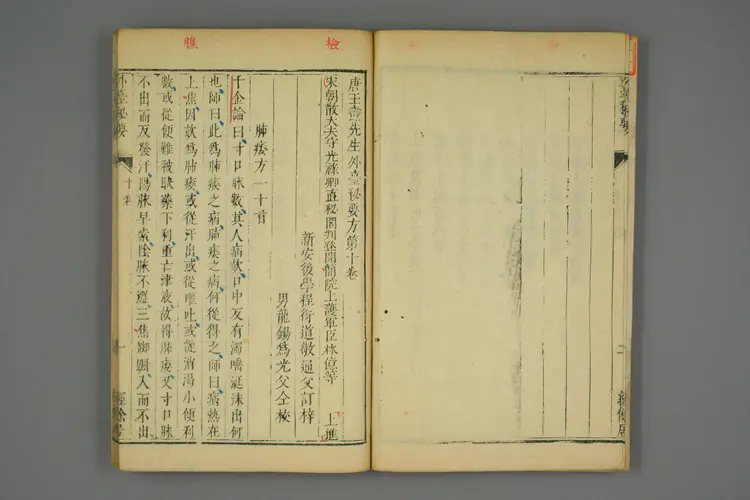 檢
瞧
唐王燾先生外臺秘要方第十卷
宋朝散大夫守光祿卿直秘閣判登聞簡院上護軍臣林億等 上進
新安後學程衍道敬通父訂梓
男龍錫為光父仝校
肺痿方一十首
千金論曰寸口脉數其人病欬口中反有濁唾涎沫出何
也師曰此為肺痿之病肺痿之病何從得之師曰病熱在
上焦因欬為肺痿或從汗出或從嘔吐或從消渴小便利
數或從便難被駃藥下利重亡津液故得肺痿又寸口脉
不出而反發汗陽脉早索陰脉不澀三焦踟躕入而不出
外臺秘要 十卷 一 經餘居